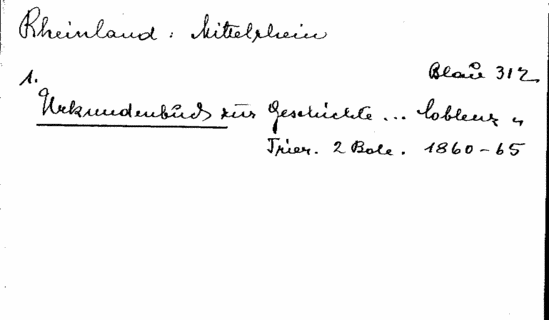 Rheinland : Mittelrhein
Blau 312
1.
Urkundenbuch zur Geschichte ... Coblenz u
Trier. 2 Bde. 1860-65